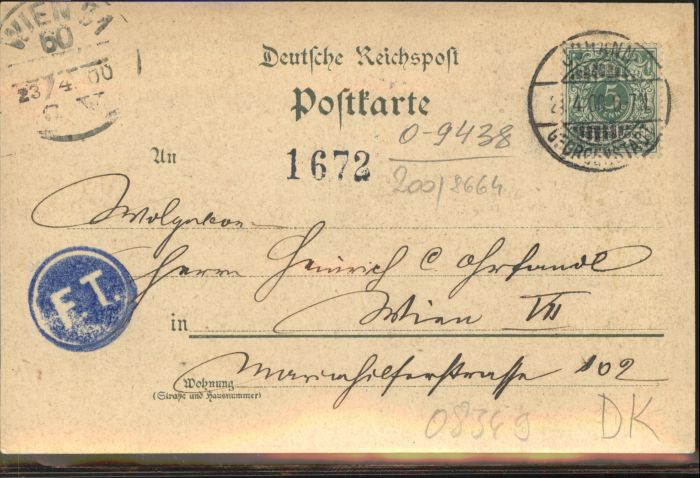 WIEN 31
60
23/4.00
Deutsche Reichspost
Postkarte
5
JOHANN
GEORGENSTADT
0-9438
An
1672
200/8664
Herrn Heinrich C Ohrfandl
F.T.
in Wien VII
Wohnung
(Straße und Hausnummer)
Mariahilferstrasse 102
08349
DK